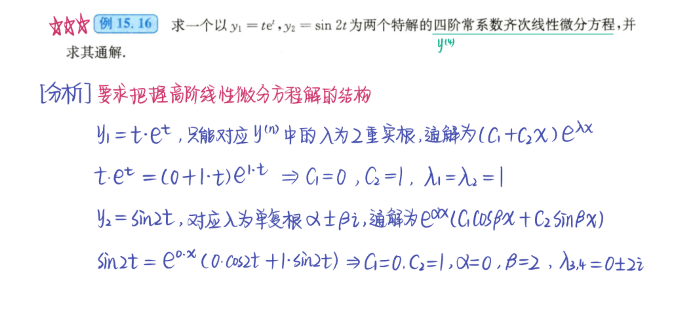 ☆☆☆ 例 15.16 求一个以 y₁ = teᵗ, y₂ = sin 2t 为两个特解的四阶常系数齐次线性微分方程,并
y⁽⁴⁾
求其通解.
[分析] 要求把握高阶线性微分方程解的结构
y₁ = t·eᵗ , 只能对应 y⁽ⁿ⁾ 中的 λ 为 2 重实根, 通解为 (C₁+C₂x) e^{λx}
t·eᵗ = (0+1·t)e^{1·t} ⇒ C₁=0 , C₂=1, λ₁=λ₂=1
y₂ = sin2t, 对应 λ 为单复根 α±βi, 通解为 e^{αx}(C₁cosβx + C₂sinβx)
sin2t = e^{0·x} (0·cos2t +1·sin2t) ⇒ C₁=0, C₂=1, α=0 , β=2 , λ₃,₄ = 0±2i